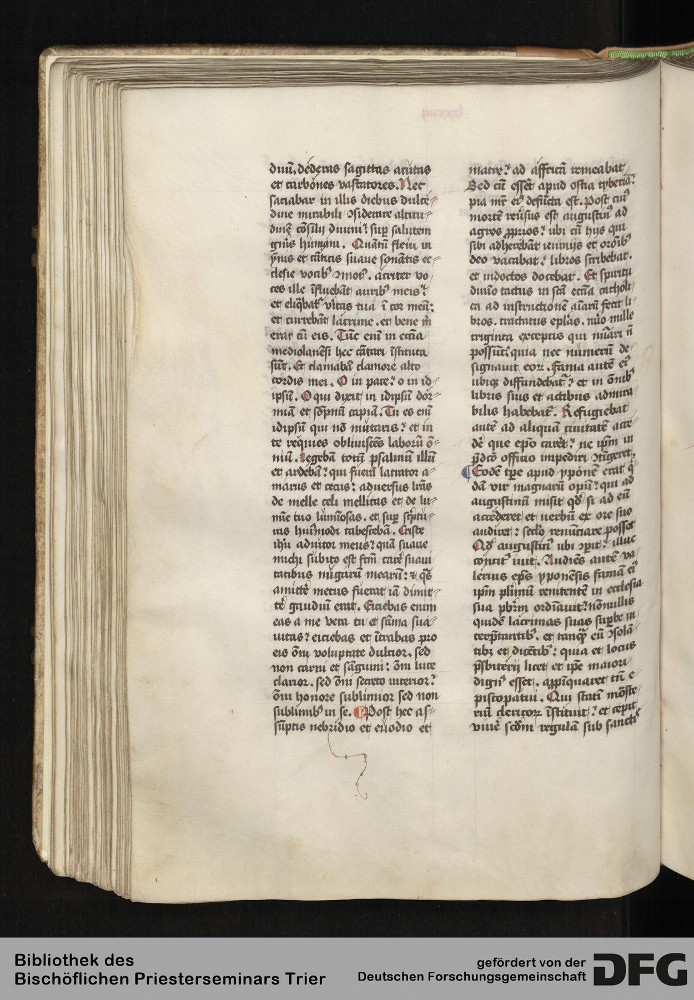 diuū. dederas sagittas acutas
et carbones vastatores. Nec
saciabar in illis diebus dulce-
dine mirabili ɔsiderare altitu-
dinē cōsilij diuini sup salutem
gn̄is hūmani. Quātū fleui in
ymnis et cāticis suaue sonātis ec-
clesie vocibꝰ ɔmotꝰ. acriter vo-
ces ille īfluebāt auribꝰ meis
et eliqbatʳ vitas tua ī cor meū
et currebāt lacrime. et bene m̄
erat cū eis. Tūc eni in eccīa
mediolanēsi hec cātari īstituta
sūt. Et clamabā clamore alto
cordis mei. O in pace? o in id
ipsū. O qui dixit in idipsū dor-
miā et sōpnū capiā. Tu es eni
idipsū qui nō mutaris? et in
te requies obliuiscēs laborū ō-
niū. Legebā totū psalmū illū
et ardebā? qui fueram latrator a-
marus et cecus? aduersus lr̄as
de melle celi mellitas et de lu-
mīe tuo lumīosas. et sup sc̄ptu-
ris huiꝰmodi tabescebā. Criste
ih̄u adiutor meus? quā suaue
michi subito est fc̄m carē suaui
tatibus nugarū mearū? et qs
amittē metus fuerat iā dimit-
tē gaudiū erat. Eiciebas enim
eas a me vera tu et sūma sua-
uitas? eiciebas et ītrabas pro
eis ōni voluptate dulcior. sed
non carni et sāguini? ōni luce
clarior. sed ōni secreto interior?
ōni honore sublimior sed non
sublimibꝰ in se. ¶ Post hec as-
sūptis nebridio et euodio et
matre? ad affricā remeabat
Sed cū esset apud ostia tyberia?
pia mr̄ eiꝰ defūcta est. Post cuiꝰ
mortē reuersus est augustinꝰ ad
agros ꝓprios? ubi cū hijs qui
sibi adherebāt ieiunijs et orōibꝰ
deo vacabat? libros scribebat.
et indoctos docebat. Et spiritu
diuino tactus in sc̄ā ecc̄ia catholi-
ca ad instructionē aīarū fecit li-
bros. tractatus ep̄las. nūo mille
triginta exceptis qui nūari nō
possūt? quia nec numerū de-
signauit eorꝝ. Fama autē eiꝰ
ubiqꝫ diffundebatʳ? et in ōnibꝰ
libris suis et actibus admira-
bilis habebatʳ. Refugiebat
autē ad aliquā ciuitatē acce-
dē que ep̄o carēt? ne ip̄m in
p̄dc̄o officio impediri ɔtigeret.
¶ Eodē tp̄e apud ypponē erat q̄
dā vir magnarū opū? qui ad
augustinū misit qd si ad eū
accederet et uerbū ex ore suo
audiret? seclo renūciare posset
Qd augustinꝰ ubi ɔpit? illuc
ɔcitꝰ iuit. Audiēs autē va-
lerius ep̄s ypponēsis famā eiꝰ
ip̄m plimū renitentē in ecclesia
sua pbrm̄ ordīauit? nōnullis
quidē lacrimas suas supbe in
terp̄tantibꝰ. et tanqꝫ eū ɔsolā-
tibꝫ et dicētibꝰ? quia et locus
p̄sbiterij licet et ip̄e maiori
dignꝰ esset. app̄iquaret tn̄ e
piscopatui. Qui statī monaste-
riū clericorꝝ īstituit? et cepit
viuē scd̄m regulā sub sanctis
Bibliothek des
Bischöflichen Priesterseminars Trier
gefördert von der
Deutschen Forschungsgemeinschaft
DFG